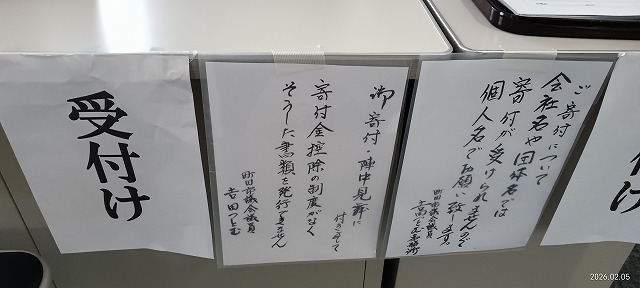 受付け
御寄付・陣中見舞に
付きまして
寄付金控除の制度がなく
そうした書類を発行できません
町田市議会議員
吉田つとむ
ご寄付について
会社名や団体名では
寄付が受けられませんので
個人名でお願い致します。
町田市議会議員
吉田つとむ事務所
2026.02.05